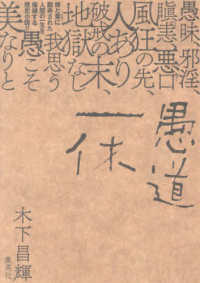 愚昧、邪淫、
瞋恚、悪口
風狂の先、
人あり
破戒の末、
地獄なし
我思う
愚こそ
美なりと
愚道
一休
木下昌輝
集英社